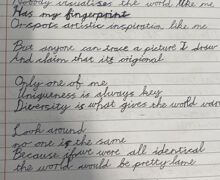 Nobody visualises the world like me
Has my fingerprint
Or spots artistic inspiration like me
But anyone can trace a picture I draw
And claim that it's original
Only one of me
Uniqueness is always key
Diversity is what gives the world
Look around
no one is the same
Because if we were all identical
the world would be pretty lame